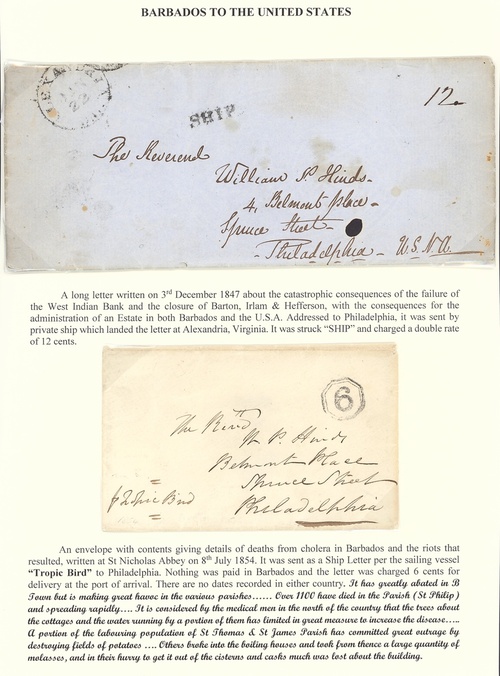 BARBADOS TO THE UNITED STATES
SHIP
12
The Reverend
William P. Hinds
4, Belmont place
Spruce Street
Philadelphia U.S.N.A.
A long letter written on 3rd December 1847 about the catastrophic consequences of the failure of
the West Indian Bank and the closure of Barton, Irlam & Hefferson, with the consequences for the
administration of an Estate in both Barbados and the U.S.A. Addressed to Philadelphia, it was sent by
private ship which landed the letter at Alexandria, Virginia. It was struck “SHIP” and charged a double rate
of 12 cents.
6
The Revd
W P. Hinds
Belmont Place
Spruce Street
p Tropic Bird
Philadelphia
An envelope with contents giving details of deaths from cholera in Barbados and the riots that
resulted, written at St Nicholas Abbey on 8th July 1854. It was sent as a Ship Letter per the sailing vessel
“Tropic Bird” to Philadelphia. Nothing was paid in Barbados and the letter was charged 6 cents for
delivery at the port of arrival. There are no dates recorded in either country. It has greatly abated in B
Town but is making great havoc in the various parishes...... Over 1100 have died in the Parish (St Philip)
and spreading rapidly.... It is considered by the medical men in the north of the country that the trees about
the cottages and the water running by a portion of them has limited in great measure to increase the disease.....
A portion of the labouring population of St Thomas & St James Parish has committed great outrage by
destroying fields of potatoes .... Others broke into the boiling houses and took from thence a large quantity of
molasses, and in their hurry to get it out of the cisterns and casks much was lost about the building.